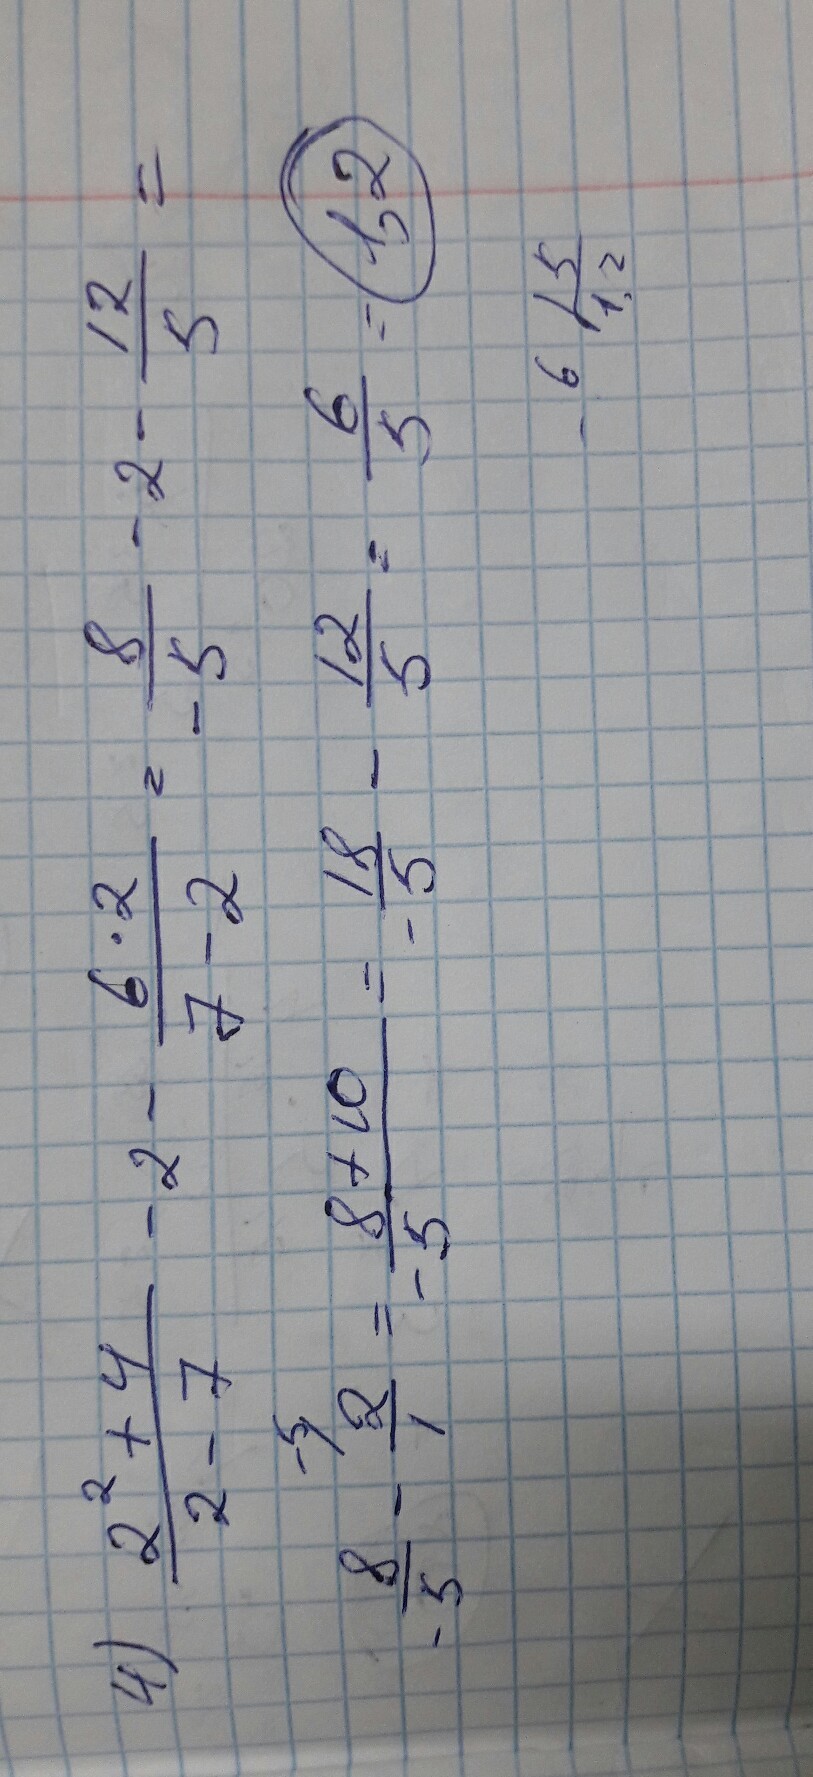 4) (2² + 4)/(2 - 7) - 2 - (6 · 2)/(7 - 2) = 8/(-5) - 2 - 12/5 =
8/(-5) - 2/1 ^(-5) = (8 + 10)/(-5) = 18/(-5) - 12/5 = 6/5 = 1,2
- 6 | 5
1,2